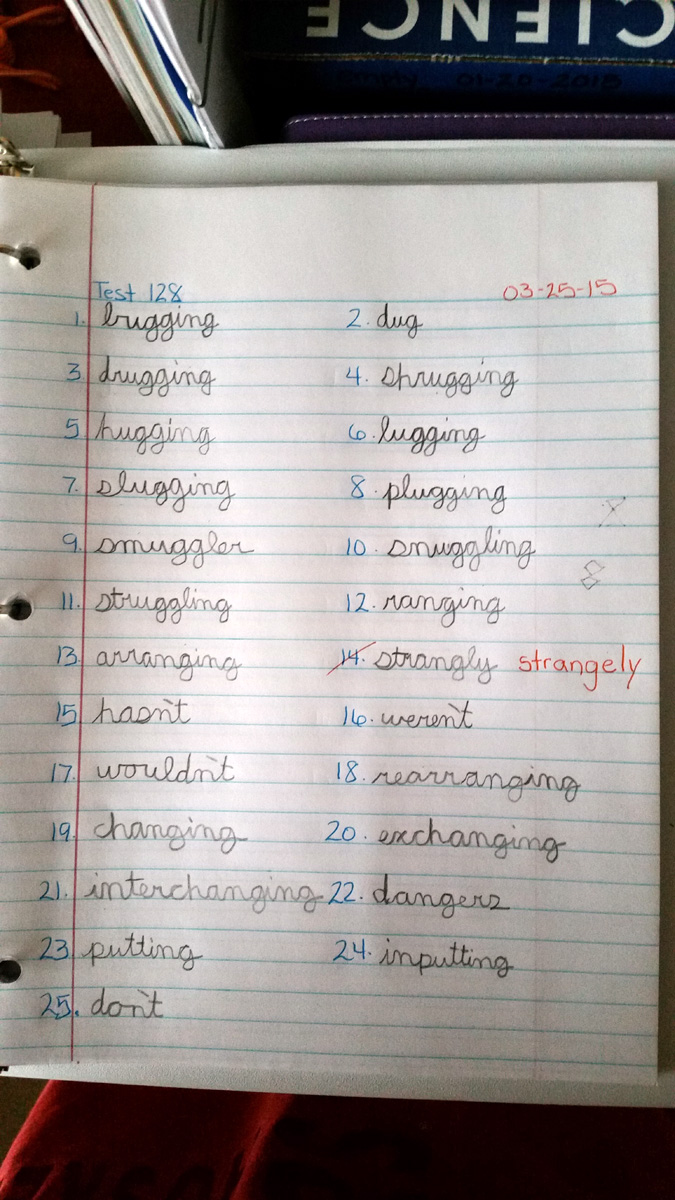 CIENCE
01-20-2015
Test 128 03-25-15
1. bugging 2. dug
3. drugging 4. shrugging
5. hugging 6. lugging
7. slugging 8. plugging
9. smuggler 10. snuggling
8
11. struggling 12. ranging
13. arranging 14. strangly strangely
15. hasn't 16. weren't
17. wouldn't 18. rearranging
19. changing 20. exchanging
21. interchanging 22. dangers
23. putting 24. inputting
25. don't